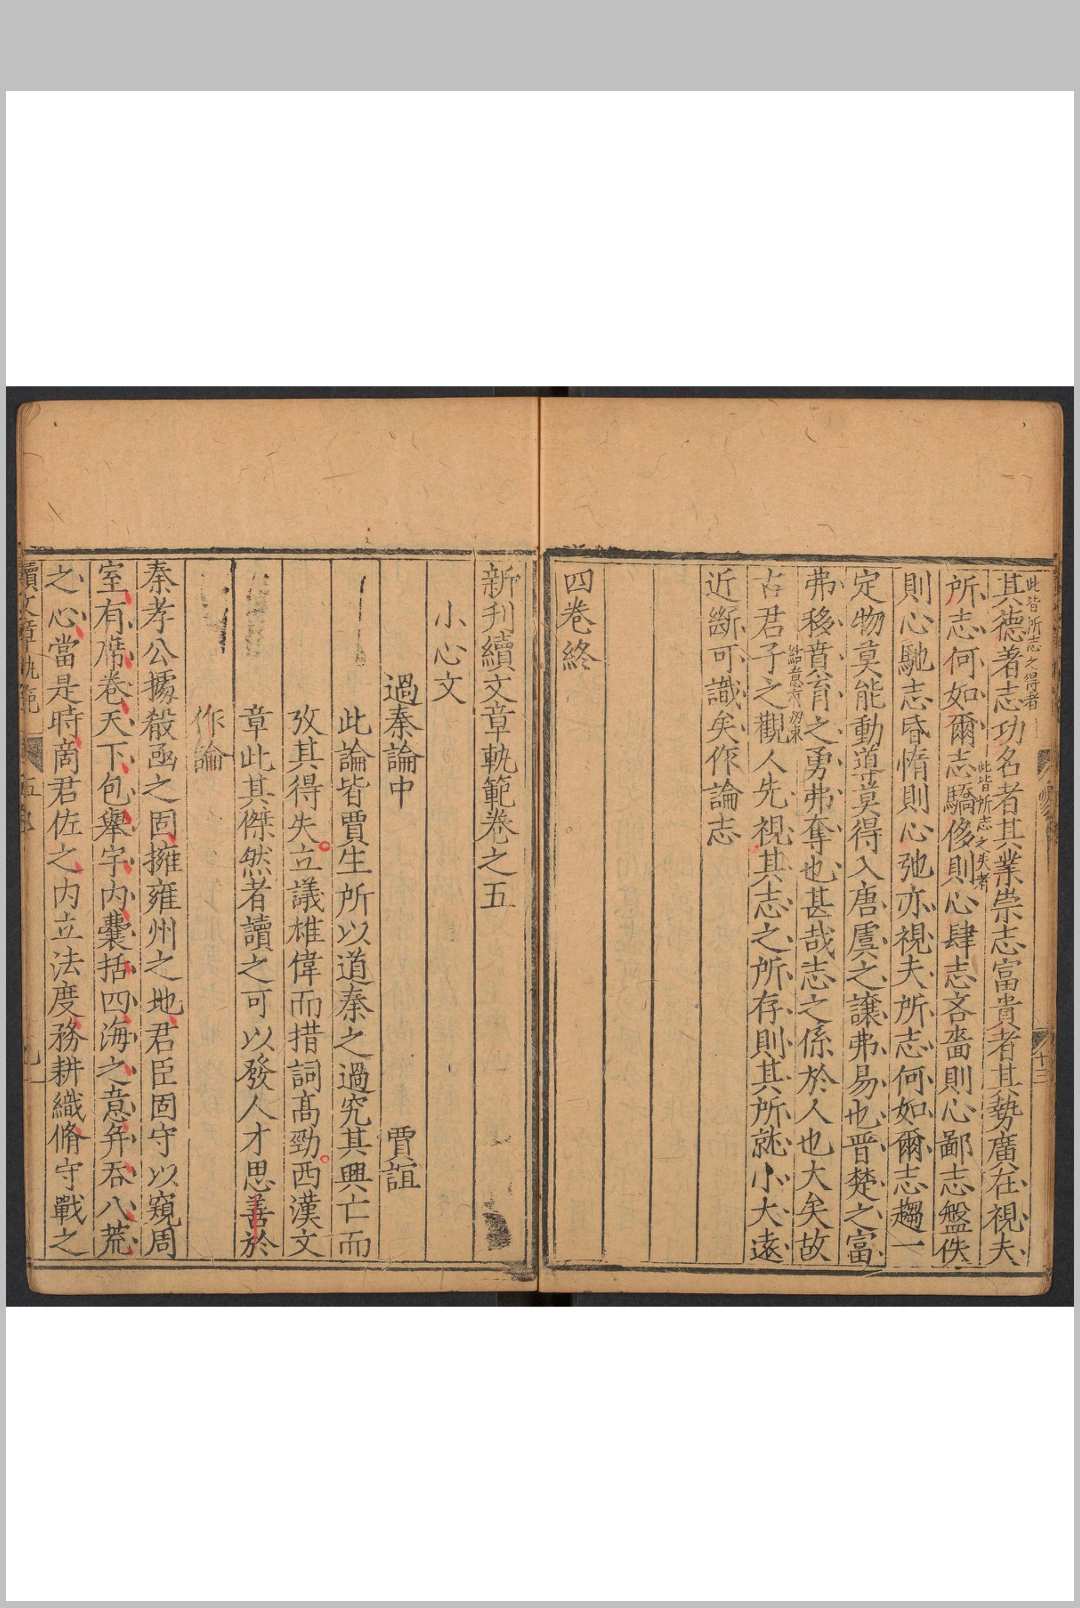 其德著志功名者其業崇志富貴者其勢廣在視夫
此皆所志之得者
所志何如爾志驕侈則心肆志吝嗇則心鄙志盤佚
此皆所志之失者
則心馳志昏惰則心弛亦視夫所志何如爾志趨一
定物莫能動導莫得入唐虞之讓弗易也晉楚之富
弗移賁育之勇弗奪也甚哉志之係於人也大矣故
結意亦
古君子之觀人先視其志之所存則其所就小大遠
近斷可識矣作論志
四卷終
十三
新刊續文章軌範卷之五
小心文
過秦論中
賈誼
此論皆賈生所以道秦之過究其興亡而
攷其得失立議雄偉而措詞高勁西漢文
章此其傑然者讀之可以發人才思善於
作論
秦孝公據殽函之固擁雍州之地君臣固守以窺周
室有席卷天下包舉宇內囊括四海之意并吞八荒
之心當是時商君佐之內立法度務耕織脩守戰之
續文章軌範
五